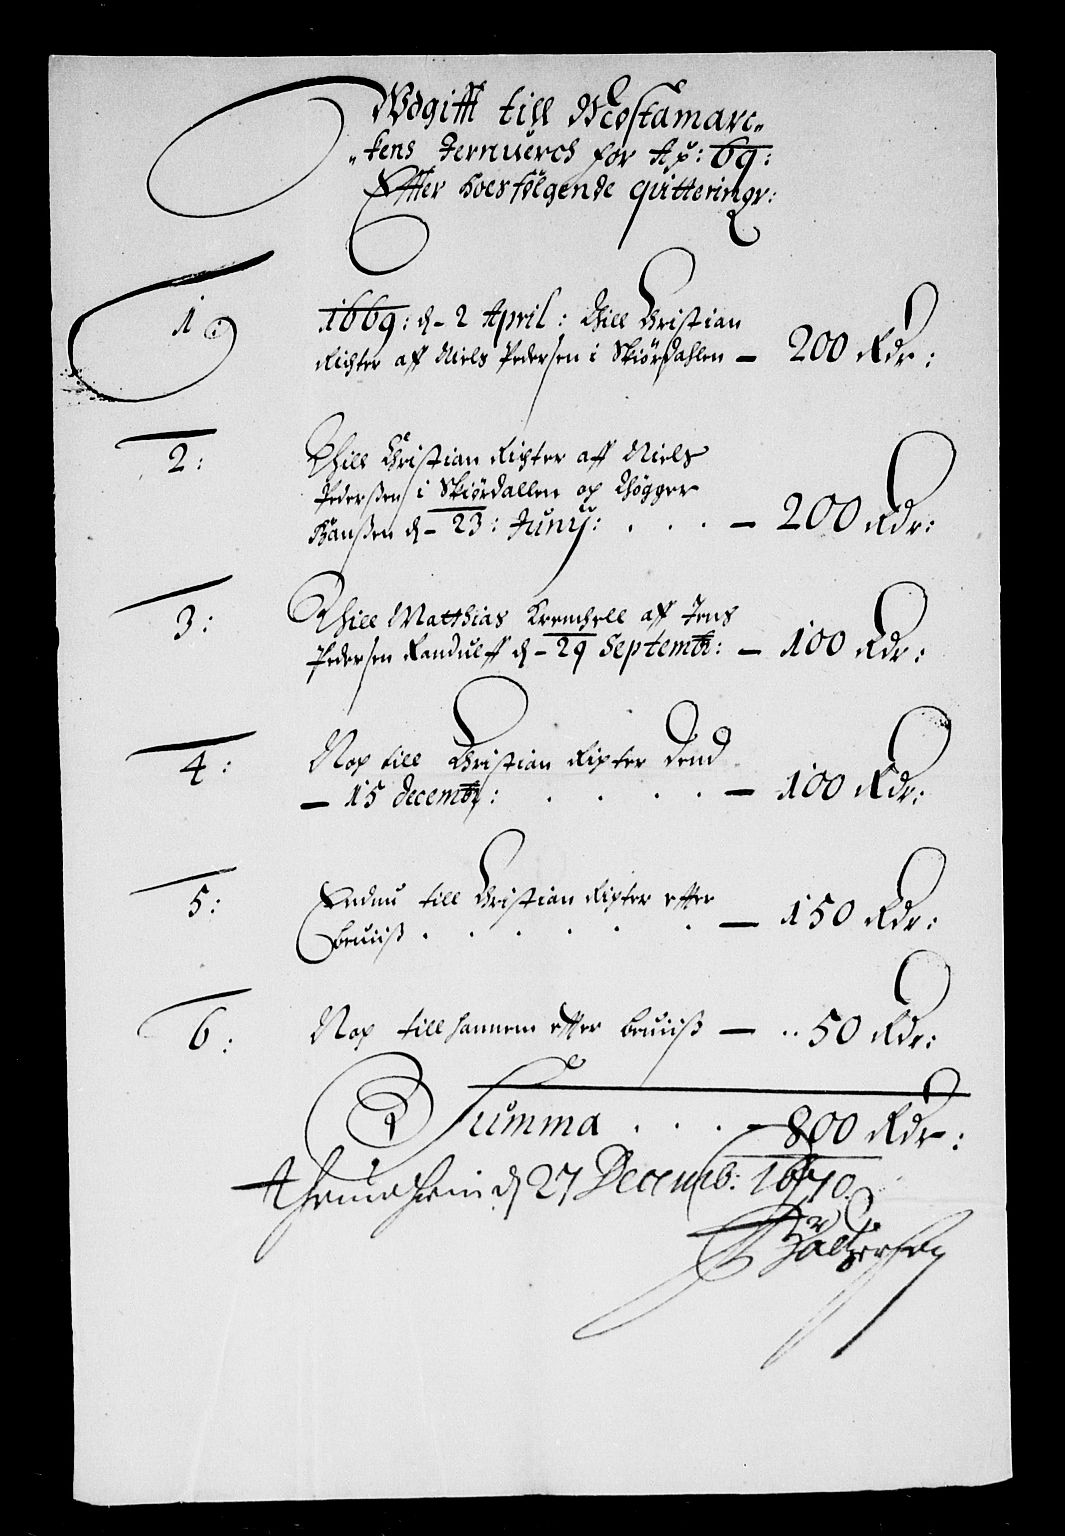 Udgifft till Mostamarc„
„kens Jernuerch for Aõ: 69:
Effter hoesfølgende quitteringr:
1. 1669: d– 2 April: Thill Christian
Richter aff Niels Pedersen i Skiördahlen – 200 Rdr:
2: Thill Christian Richter aff Niels
Pederßen i Skiördallen oc Thögger
Hanßen d– 23: Junij: . . . – 200 Rdr:
3: Thill Matthias Kremchell aff Jens
Pedersen Randulff d– 29 Septembr: – 100 Rdr:
4: Noch till Christian Richter Dend
– 15 decembr: . . . . – 100 Rdr:
5: Endnu till Christian Richter effter
beuiiß . . . . . . – 150 Rdr:
6: Noch till hannem effter beuiiß – .. 50 Rdr:
Summa . . . – 800 Rdr:
Thrundheim d 27 Decemb: 1670.